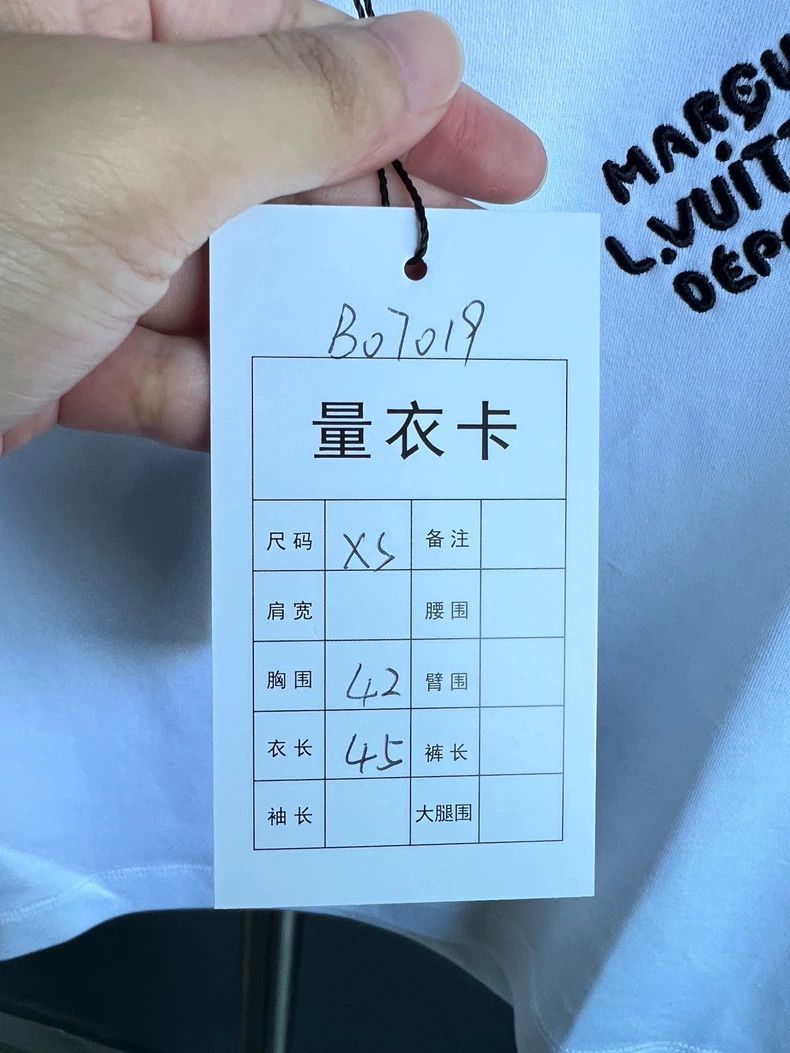 MARÇU
L.VUITT
DÉPO
B07019
量衣卡
尺码 XS 备注
肩宽 腰围
胸围 42 臂围
衣长 45 裤长
袖长 大腿围